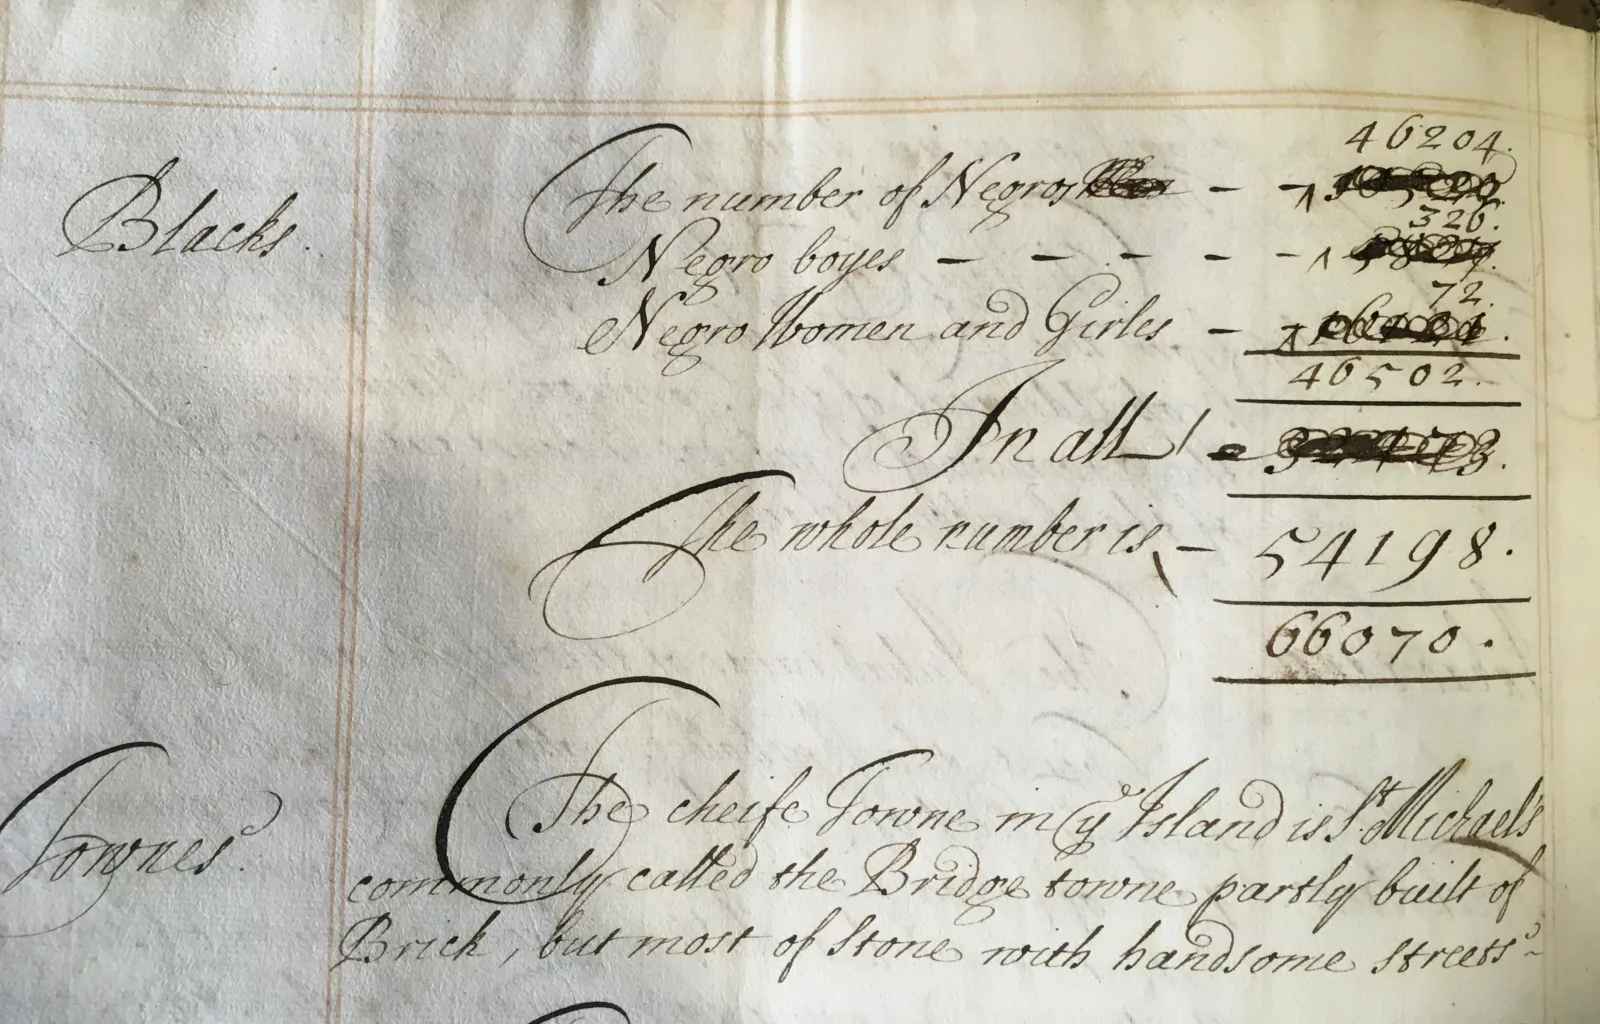 46204.
Blacks. The number of Negros - -
326.
Negro boyes - - - - - -
72.
Negro Women and Girles -
46502.
In all
The whole number is - 54198.
66070.
Townes The cheife Towne in ye Island is St Michael's
commonly called the Bridge towne partly built of
Brick, but most of Stone with handsome streets